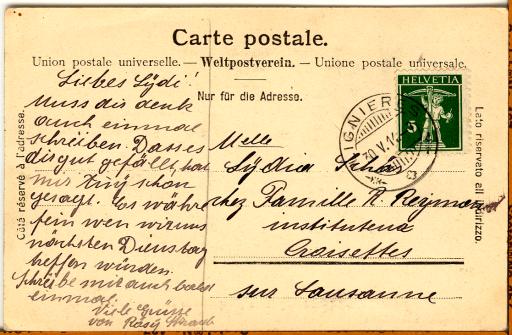 Carte postale.
Union postale universelle. — Weltpostverein. — Unione postale universale.
Nur für die Adresse.
Côté réservé à l'adresse.
Lato riservato all'indirizzo.
HELVETIA
5
LIGNIERES
Liebes Lÿdi!
Muss dir denk
auch einmal
schreiben. Dass es
dir gut gefällt, hat
mir schon
gesagt. Es wäre
fein wen wir uns
nächsten Dienstag
treffen würden.
Schreibe mir auch bald
einmal.
Viele Grüsse
von Rösÿ
Melle
Lÿdia
chez Famille R. Reymond
instituteur
Croisettes
sur Lausanne